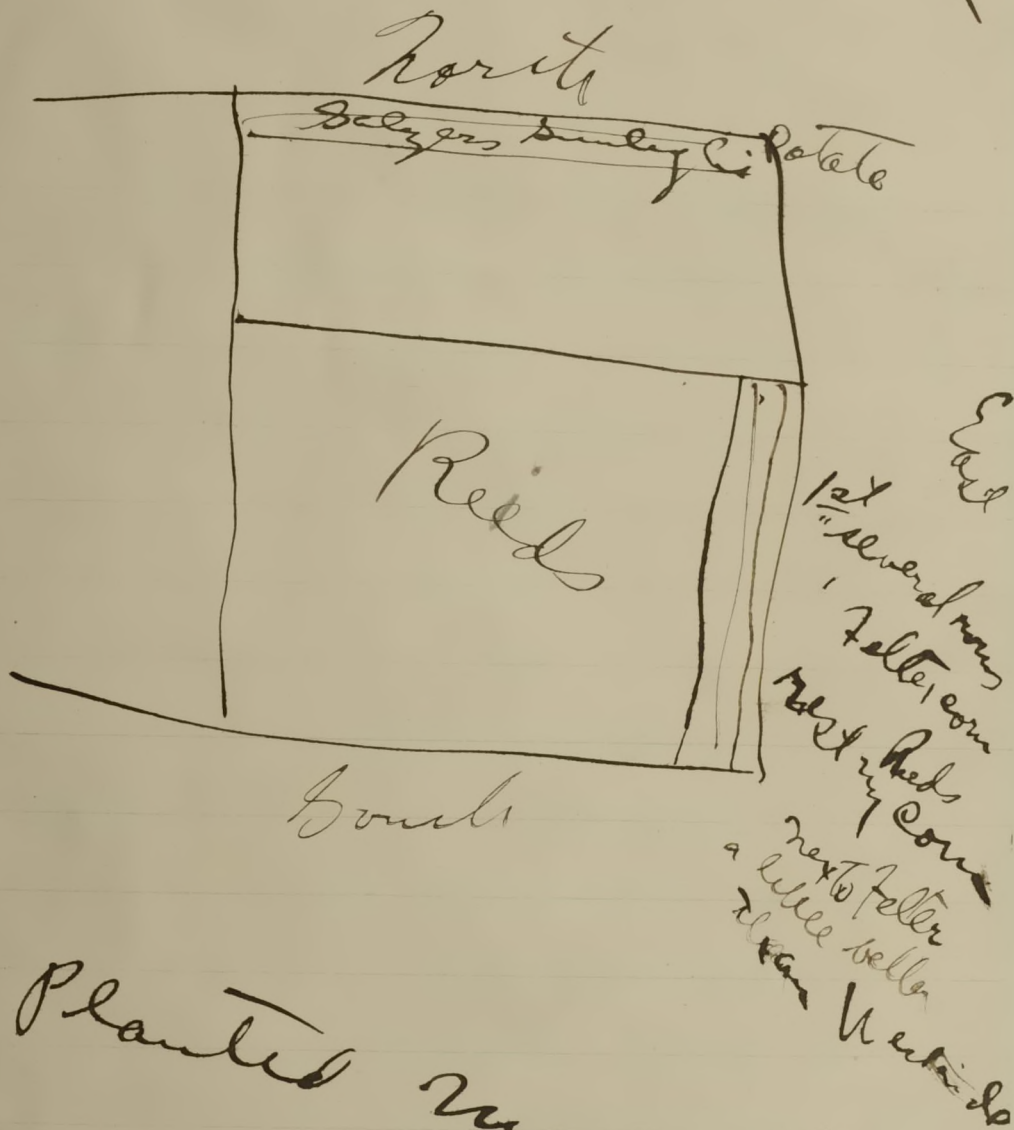 North
Salzers Potato
Reeds
East
1st several rows
Felter corn
Rest Reds
my corn
next to Felter
a little better
than
South
Planted